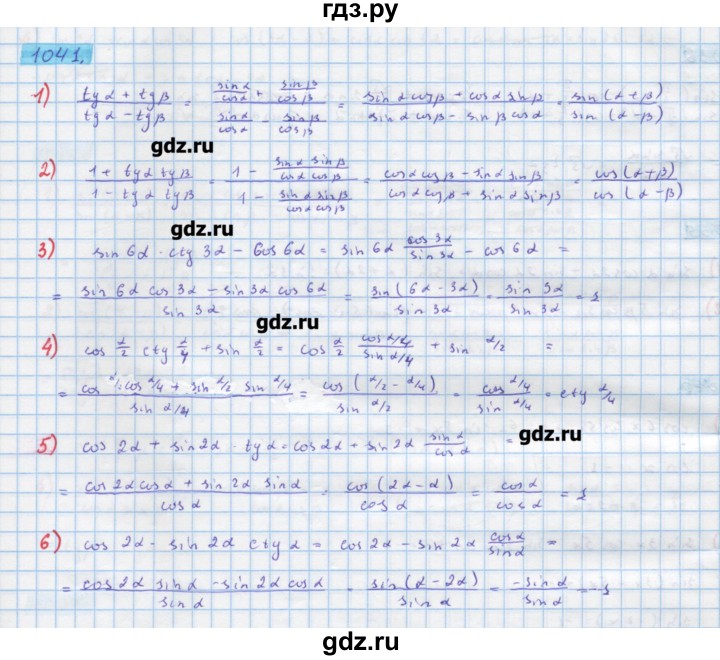 гдз.ру
1041.
1) (tg α + tg β)/(tg α - tg β) = (sin α/cos α + sin β/cos β)/(sin α/cos α - sin β/cos β) = (sin α cos β + cos α sin β)/(sin α cos β - sin β cos α) = sin(α+β)/sin(α-β)
gdz.ru
2) (1 + tg α tg β)/(1 - tg α tg β) = (1 - sin α sin β/cos α cos β)/(1 - sin α sin β/cos α cos β) = (cos α cos β - sin α sin β)/(cos α cos β + sin α sin β) = cos(α+β)/cos(α-β)
gdz.ru
3) sin 6α · ctg 3α - cos 6α = sin 6α cos 3α/sin 3α - cos 6α =
= (sin 6α cos 3α - sin 3α cos 6α)/sin 3α = sin(6α - 3α)/sin 3α = sin 3α/sin 3α = 1
gdz.ru
4) cos α/2 ctg α/4 + sin α/2 = cos α/2 cos α/4/sin α/4 + sin α/2 =
= (cos α/2 cos α/4 + sin α/2 sin α/4)/sin α/4 = cos(α/2 - α/4)/sin α/2 = cos α/4/sin α/4 = ctg α/4
gdz.ru
5) cos 2α + sin 2α · tg α = cos 2α + sin 2α sin α/cos α =
= (cos 2α cos α + sin 2α sin α)/cos α = cos(2α - α)/cos α = cos α/cos α = 1
gdz.ru
6) cos 2α - sin 2α ctg α = cos 2α - sin 2α cos α/sin α =
= (cos 2α sin α - sin 2α cos α)/sin α = sin(α - 2α)/sin α = -sin α/sin α = -1
gdz.ru